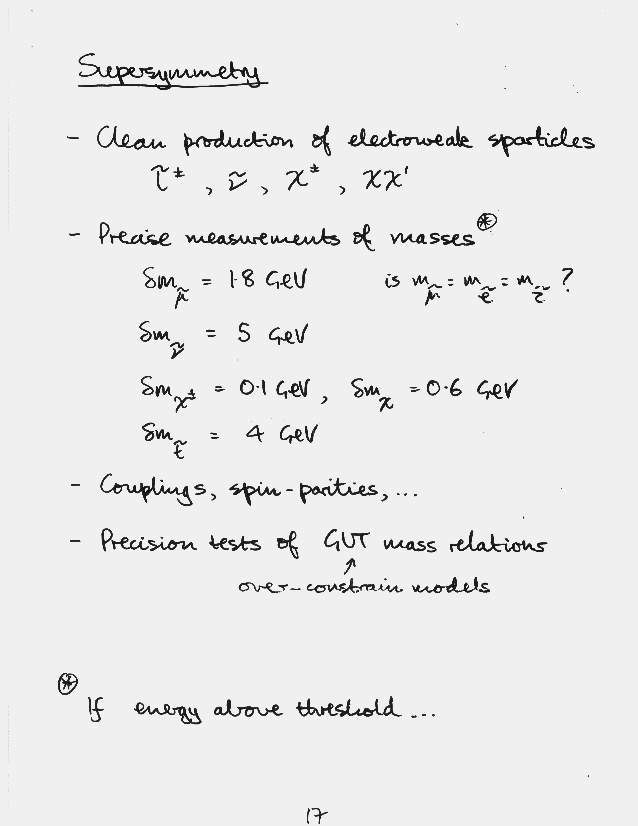 Supersymmetry
- Clean production of electroweak sparticles
τ̃±, ν̃, χ±, χχ'
- Precise measurements of masses ⊛
δm_μ̃ = 1.8 GeV is m_μ̃ = m_ẽ = m_τ̃ ?
δm_ν̃ = 5 GeV
δm_χ± = 0.1 GeV, δm_χ = 0.6 GeV
δm_t̃ = 4 GeV
- Couplings, spin-parities, ...
- Precision tests of GUT mass relations
↑
over-constrain models
⊛
If energy above threshold ...
17